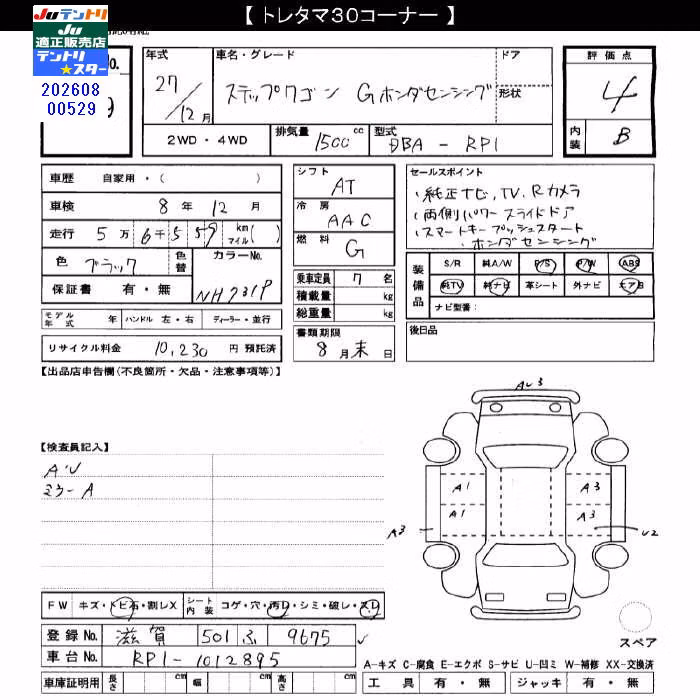 【 トレタマ30コーナー 】
Juテントリ
Ju
適正販売店
テントリ
★スター
202608
00529
No.
年式
27/12月
車名・グレード
ステップワゴン Gホンダセンシング
ドア
形状
評価点
4
内装
B
2WD・4WD
排気量
1500cc
型式
DBA - RP1
車歴 自家用・( )
車検 8年 12月
走行 5万6千559 km マイル( )
色 ブラック
色替
カラーNo.
NH731P
保証書 有・無
モデル年式 年
ハンドル 左・右
ディーラー・並行
リサイクル料金 10,230 円 預託済
シフト
AT
冷房
AAC
燃料
G
乗車定員 7 名
積載量 kg
総重量 kg
書類期限
8月末日
セールスポイント
・純正ナビ、TV、Rカメラ
・両側パワースライドドア
・スマートキープッシュスタート
・ホンダセンシング
装備品
S/R 純A/W P/S P/W ABS
純TV 純ナビ 革シート 外ナビ エアB
ナビ型番:
後日品
【出品店申告欄(不良箇所・欠品・注意事項等)】
【検査員記入】
A'U
ミラーA
AU3
A1
A3
A1
A3
A3
U2
スペア
FW キズ・トビ石・割レX
シート内装 コゲ・穴・汚レ・シミ・破レ・スレ
登録No. 滋賀 501 ふ 9675
車台No. RP1-1012895
車庫証明用 長さ cm 幅 cm 高さ cm
A-キズ C-腐食 E-エクボ S-サビ U-凹ミ W-補修 XX-交換済
工具 有・無 ジャッキ 有・無